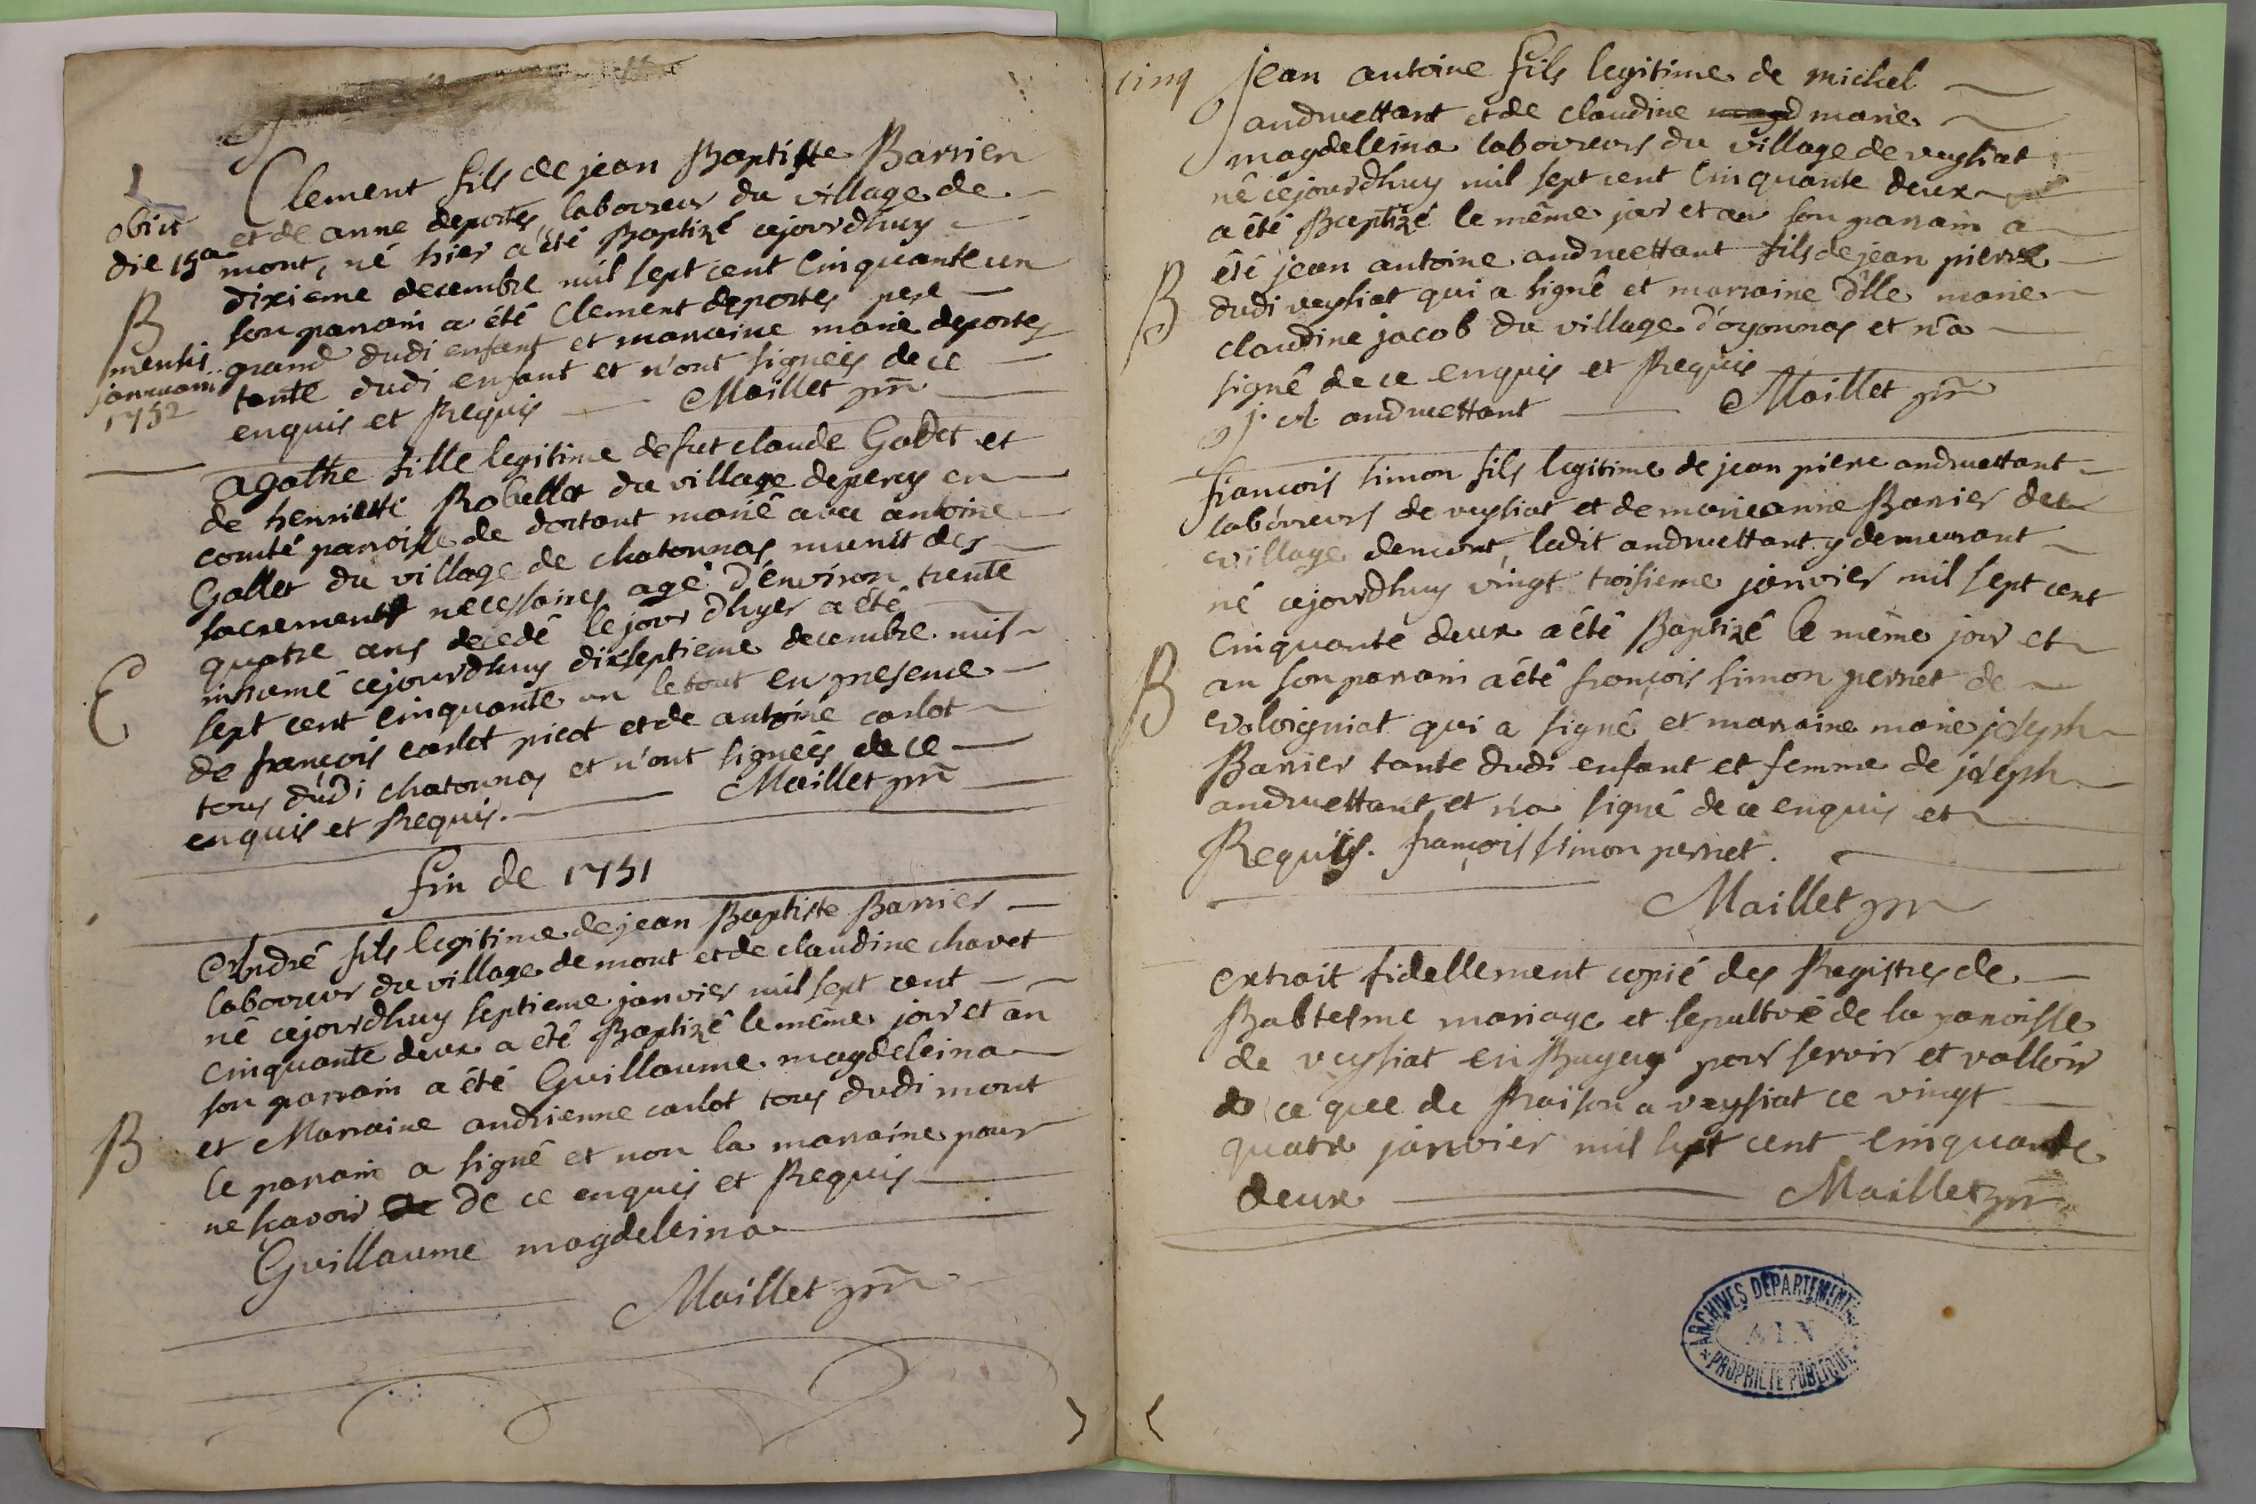 Clement fils de jean Baptiste Barrier
et de anne deportes laboureur du village de
mont, né hier a été Baptizé cejourdhuy
dixieme decembre mil sept cent Cinquante un
son parrain a été Clement deportes pere
grand dudi enfant et marraine marie deportes
tante dudi enfant et n'ont signeës de ce
enquis et Requis Maillet
obiit
die 19a
B
mensis
januarii
1752
agathe fille legitime de fut claude Godet et
de henriette Robellet du village depercy en
comté paroisse de dortant marié avec antoine
Gallet du village de chatonnas munit des
sacrements necessaires agé d'environ trente
quatre ans decedé le jour d'hyer a été
inhumé cejourdhuy dixseptieme decembre mil
sept cent Cinquante un le tout en presence
de françois carlot picot et de antoine carlot
tous dudi chatonnas et n'ont signeës de ce
enquis et Requis. Maillet
E
fin de 1751
André fils legitime de jean Baptiste Barrier
laboureur du village de mont et de claudine chavet
né cejourdhuy septieme janvier mil sept cent
Cinquante deux a été Baptizé le même jour et an
son parrain a été Guillaume magdeleina
et Marraine andrienne carlot tous dudi mont
le parrain a signé et non la marraine pour
ne scavoir de ce enquis et Requis
B
Guillaume magdelleina
Maillet
cinq
jean antoine fils legitime de michel
andruettant et de claudine marie
magdelleina laboureurs du village de veysiat
né cejourdhuy mil sept cent Cinquante deux
a été Baptizé le même jour et an son parrain a
été jean antoine andruettant fils de jean pierre
dudi veysiat qui a signé et marraine dlle marie
claudine jacob du village d'oyonnas et n'a
signé de ce enquis et Requis
B
J: A andruettant Maillet
francois simon fils legitime de jean pierre andruettant
laboureurs de veysiat et de marieanne Barrier du
village demont, ledit andruettant y demeurant
né cejourdhuy vingt troisieme janvier mil sept cent
Cinquante deux a été Baptizé le même jour et
an son parrain a été françois simon pernet de
voloigniat qui a signé et marraine marie joseph
Barrier tante dudi enfant et femme de joseph
andruettant et n'a signé de ce enquis et
Requis. françois simon pernet.
B
Maillet
extrait fidellement copié des Registres de
Babtesme mariage et sepulture de la paroisse
de veysiat en Bugey pour servir et valloir
a ce que de Raison a veysiat ce vingt
quatre janvier mil sept cent Cinquante
deux Maillet
ARCHIVES DÉPARTEMENTALES
AIN
PROPRIÉTÉ PUBLIQUE